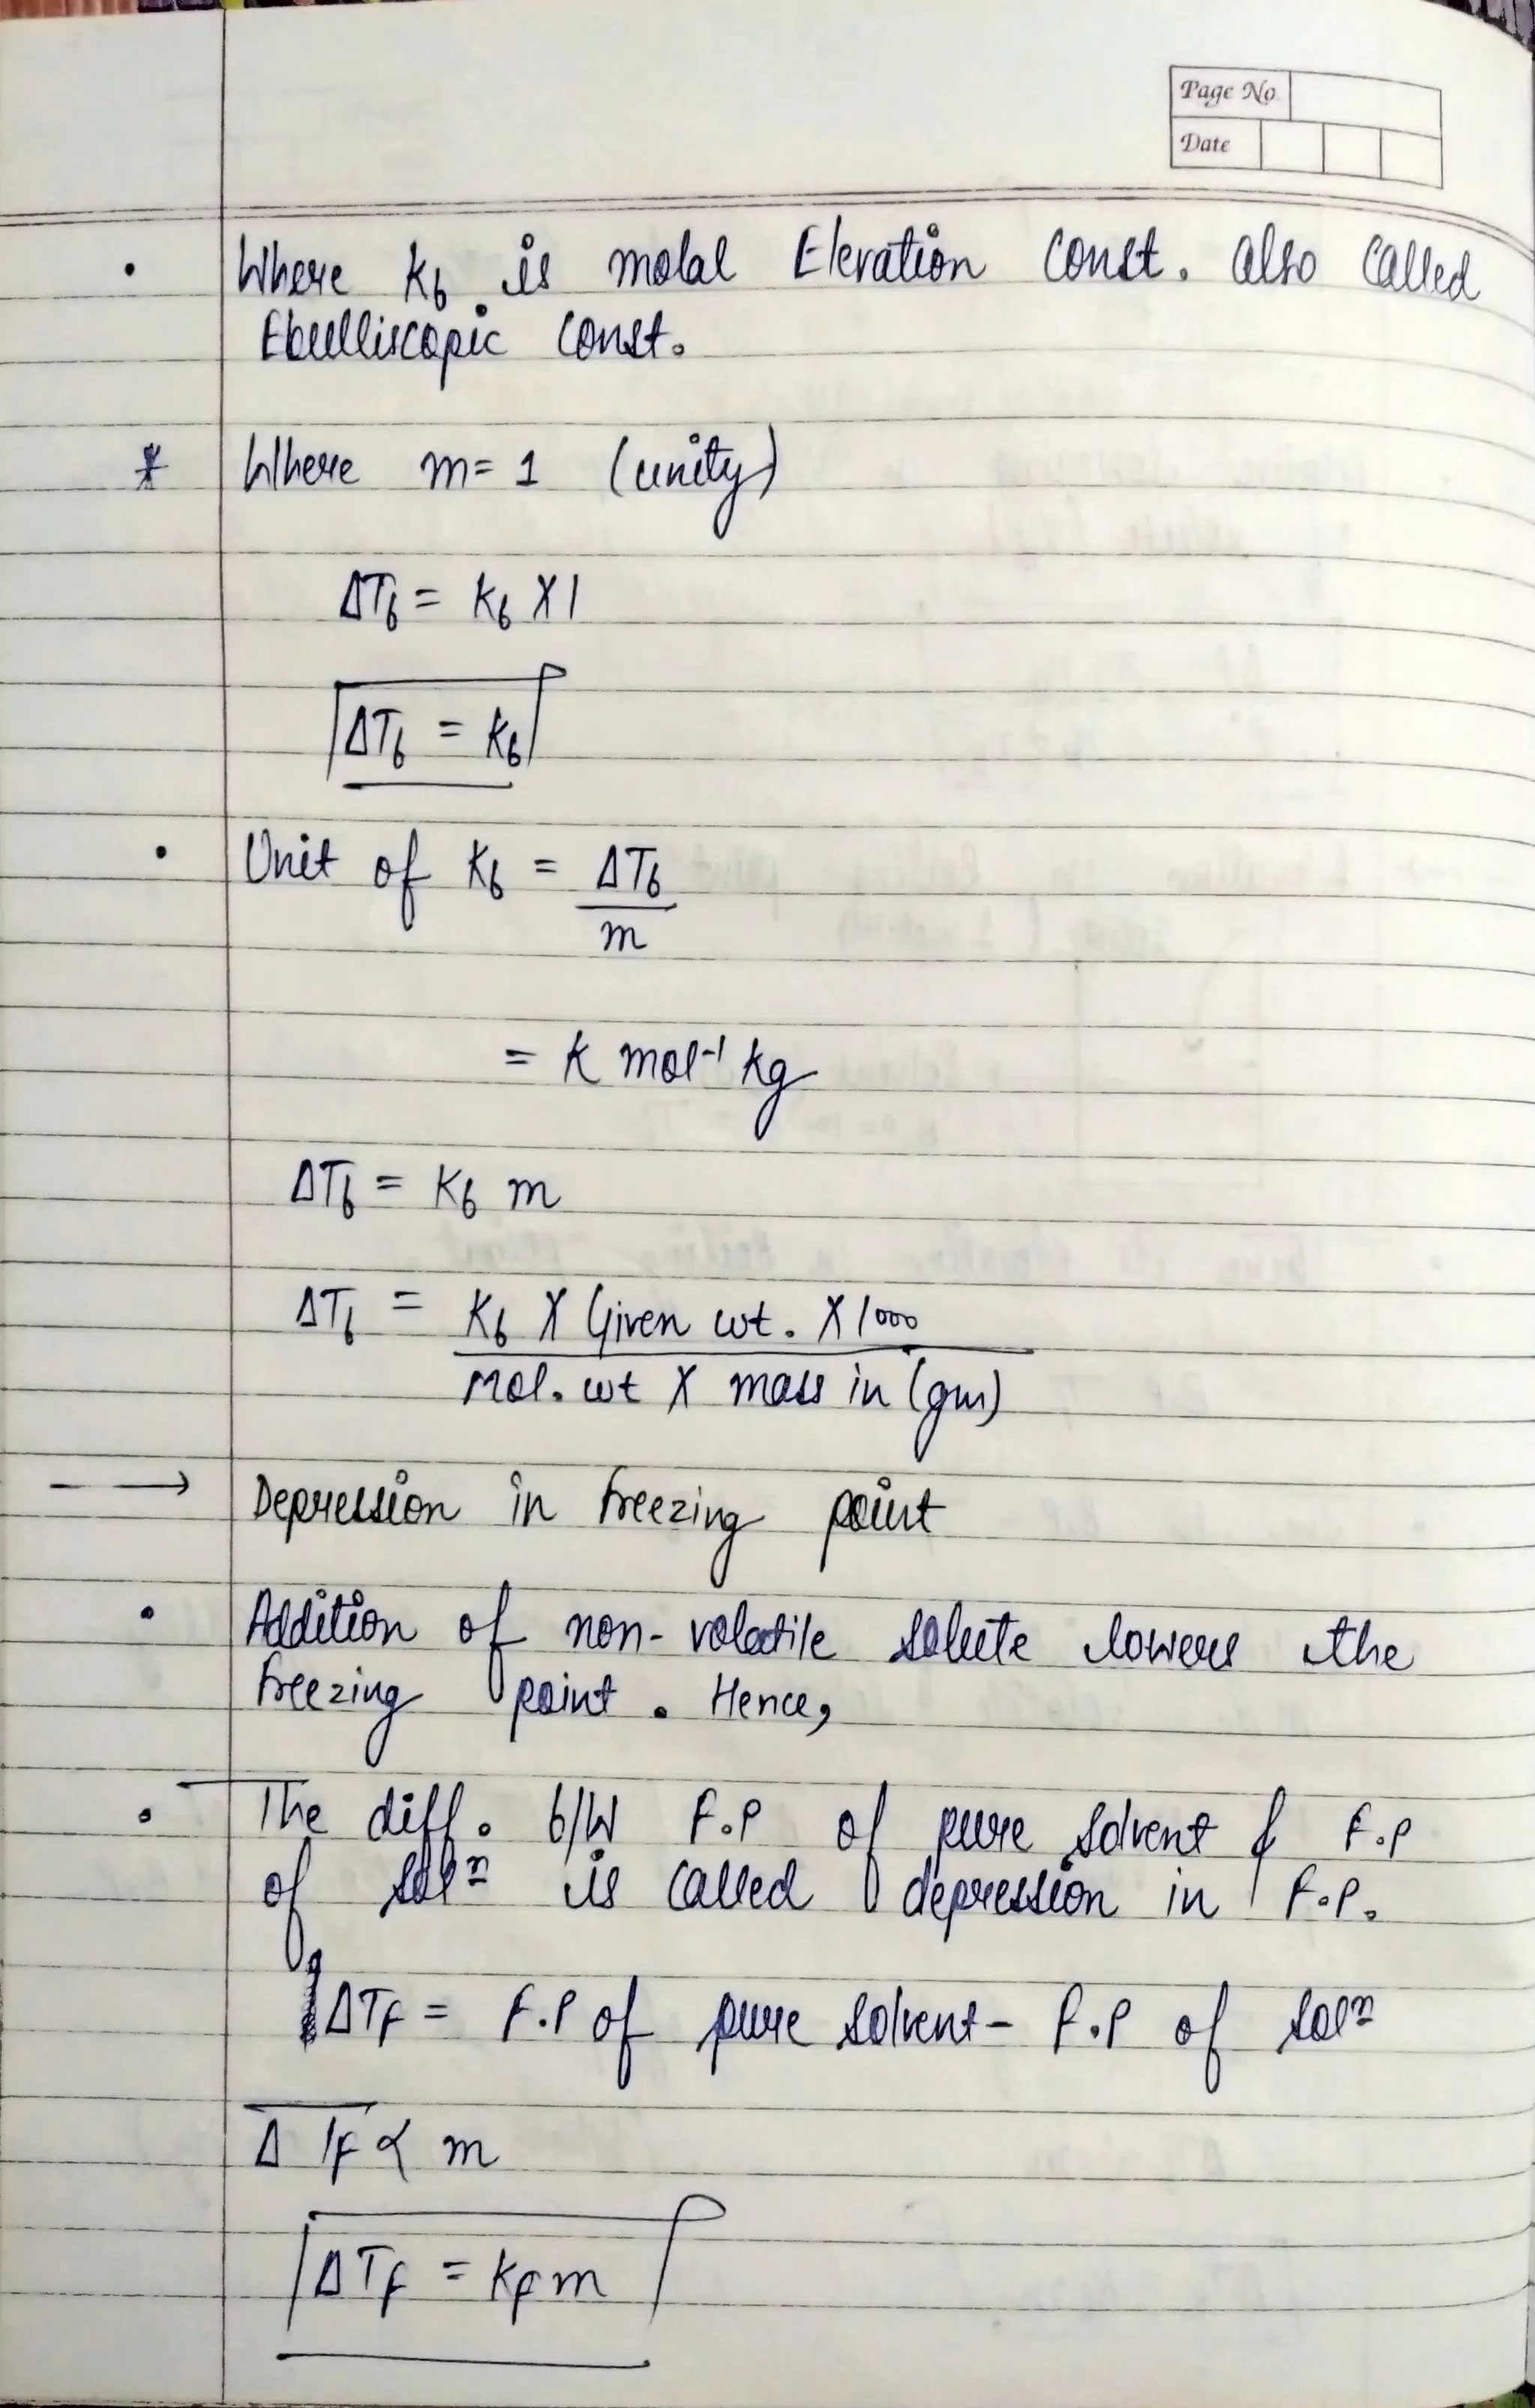 Page No.
Date
• Where Kb is molal Elevation Const. also called
Ebulliscopic Const.
* Where m = 1 (unity)
ΔTb = Kb X 1
ΔTb = Kb
• Unit of Kb = ΔTb
m
= K mol⁻¹ kg
ΔTb = Kb m
ΔTb = Kb X Given wt. X 1000
Mol. wt X mass in (gm)
→ Depression in freezing point
• Addition of non-volatile solute lowers the
freezing point. Hence,
• The diff. b/w F.P of pure solvent & F.P
of solⁿ is called depression in F.P.
ΔTF = F.P of pure solvent - F.P of solⁿ
ΔTF ∝ m
ΔTF = KF m